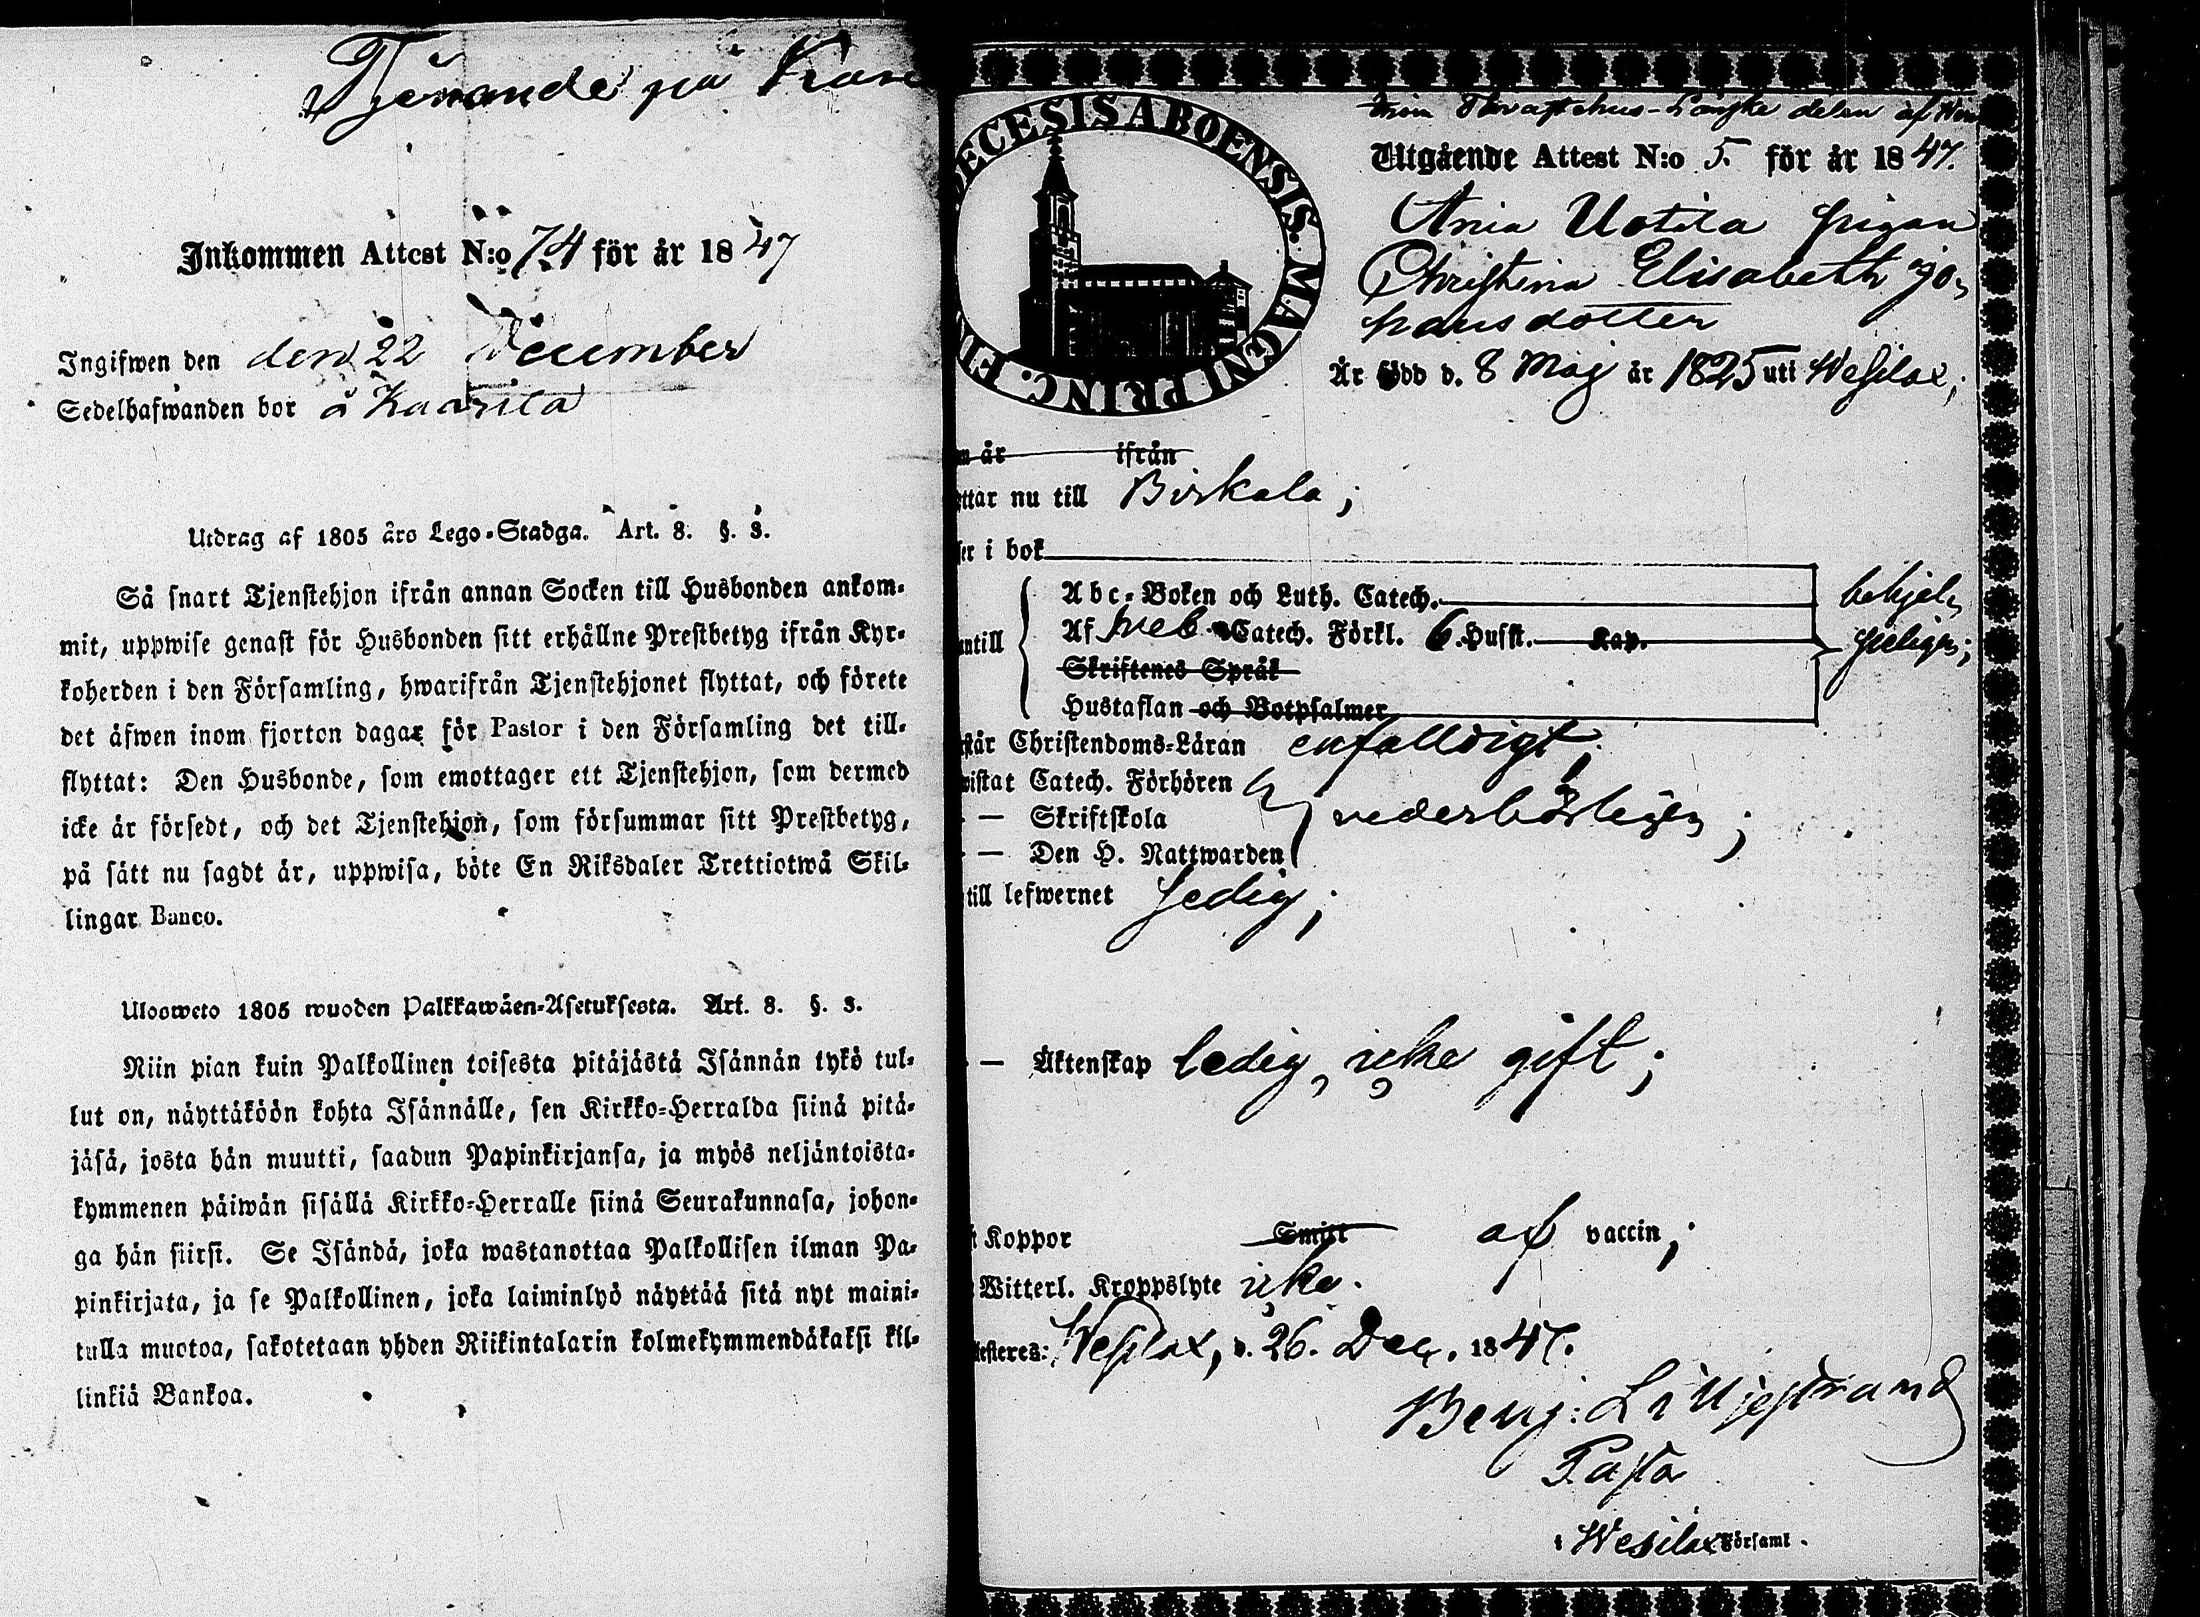 Tjenande på
Inkommen Attest N:o 74 för år 1847
Ingifwen den den 22 December
Sedelhafwanden bor å Kaarila
Utdrag af 1805 års Lego-Stadga. Art. 8. §. 3.
Så snart Tjenstehjon ifrån annan Socken till Husbonden ankom-
mit, uppwise genast för Husbonden sitt erhållne Prestbetyg ifrån Kyr-
koherden i den Församling, hwarifrån Tjenstehjonet flyttat, och förete
det äfwen inom fjorton dagar för Pastor i den Församling det till-
flyttat: Den Husbonde, som emottager ett Tjenstehjon, som dermed
icke är försedt, och det Tjenstehjon, som försummar sitt Prestbetyg,
på sätt nu sagdt är, uppwisa, böte En Riksdaler Trettiotwå Skil-
lingar Banco.
Ulosweto 1805 wuoden Palkkawäen-Asetuksesta. Art. 8. §. 3.
Niin pian kuin Palkollinen toisesta pitäjästä Isännän tykö tul-
lut on, näyttäköön kohta Isännälle, sen Kirkko-Herralda siinä pitä-
jäsä, josta hän muutti, saadun Papinkirjansa, ja myös neljäntoista-
kymmenen päiwän sisällä Kirkko-Herralle siinä Seurakunnasa, johon-
ga hän siirsi. Se Isändä, joka wastanottaa Palkollisen ilman Pa-
pinkirjata, ja se Palkollinen, joka laiminlyö näyttää sitä nyt maini-
tulla muotoa, sakotetaan yhden Riikintalarin kolmekymmendäkaksi kil-
linkiä Bankoa.
ECESIS ABOENSIS. MAGNI PRINC. FIN
delen af
Utgående Attest N:o 5. för år 1847.
Uotila pigan
Christina Elisabeth Jo-
hansdotter
Är född d. 8 Maj år 1825 uti Wesilax;
m år ifrån
ttar nu till Birkala;
ser i bok
Abc-Boken och Luth. Catech. behjel-
ntill Af Sveb. Catech. Förkl. 6. Husst. Kap. peligen;
Skriftenes Språk
Hustaflan och Botpsalmer
står Christendoms-Läran enfalldigt;
wistat Catech. Förhören
— Skriftskola vederbörligen;
— Den H. Nattwarden
till lefwernet ledig;
— Äktenskap ledig, icke gift;
Koppor Smitt af vaccin;
Witterl. Kroppslyte icke.
esteres: Wesilax, d. 26. Dec. 1847.
Benj: Lilljestrand
Pastor
i Wesilax Församl.